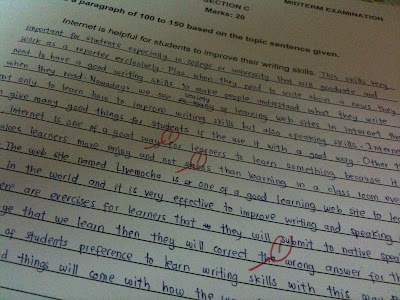 SECTION C
Marks: 20
MIDTERM EXAMINATION
a paragraph of 100 to 150 based on the topic sentence given.
Internet is helpful for students to improve their writing skills. This skills very
important for students especially in college or university that will graduate and
work as a reporter exclusively. Plus when they need to write about a news they
need to have a good writing skills to make people understand what they write
when they read. Nowadays we see variety learning web sites in Internet that
not only to learn how to improve writing skills but also speaking skills. Internet
give many good things for students is the use it with a good way. Other
Internet is one of a good way for learners to learn something because it
makes learners more enjoy and not than learning in a class room even
The web site named Livemocha is one of a good learning web site to
in the world and it is very effective to improve writing and speaking
there are exercises for learners that they will submit to native
that we learn then they will correct the wrong answer for
of students preference to learn writing skills with this
things will come with how the